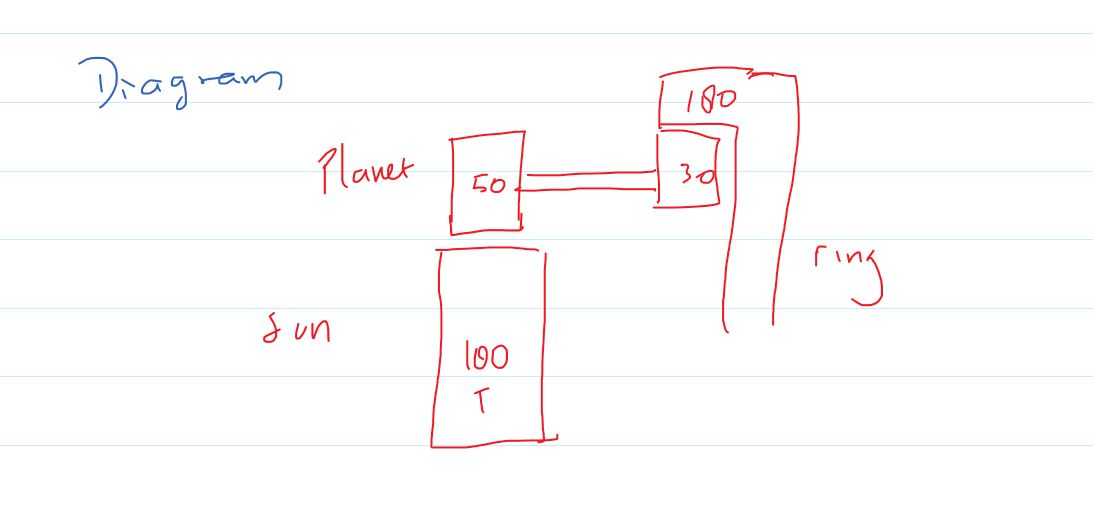 Diagram
180
Planet 50 30
ring
Sun
100
T